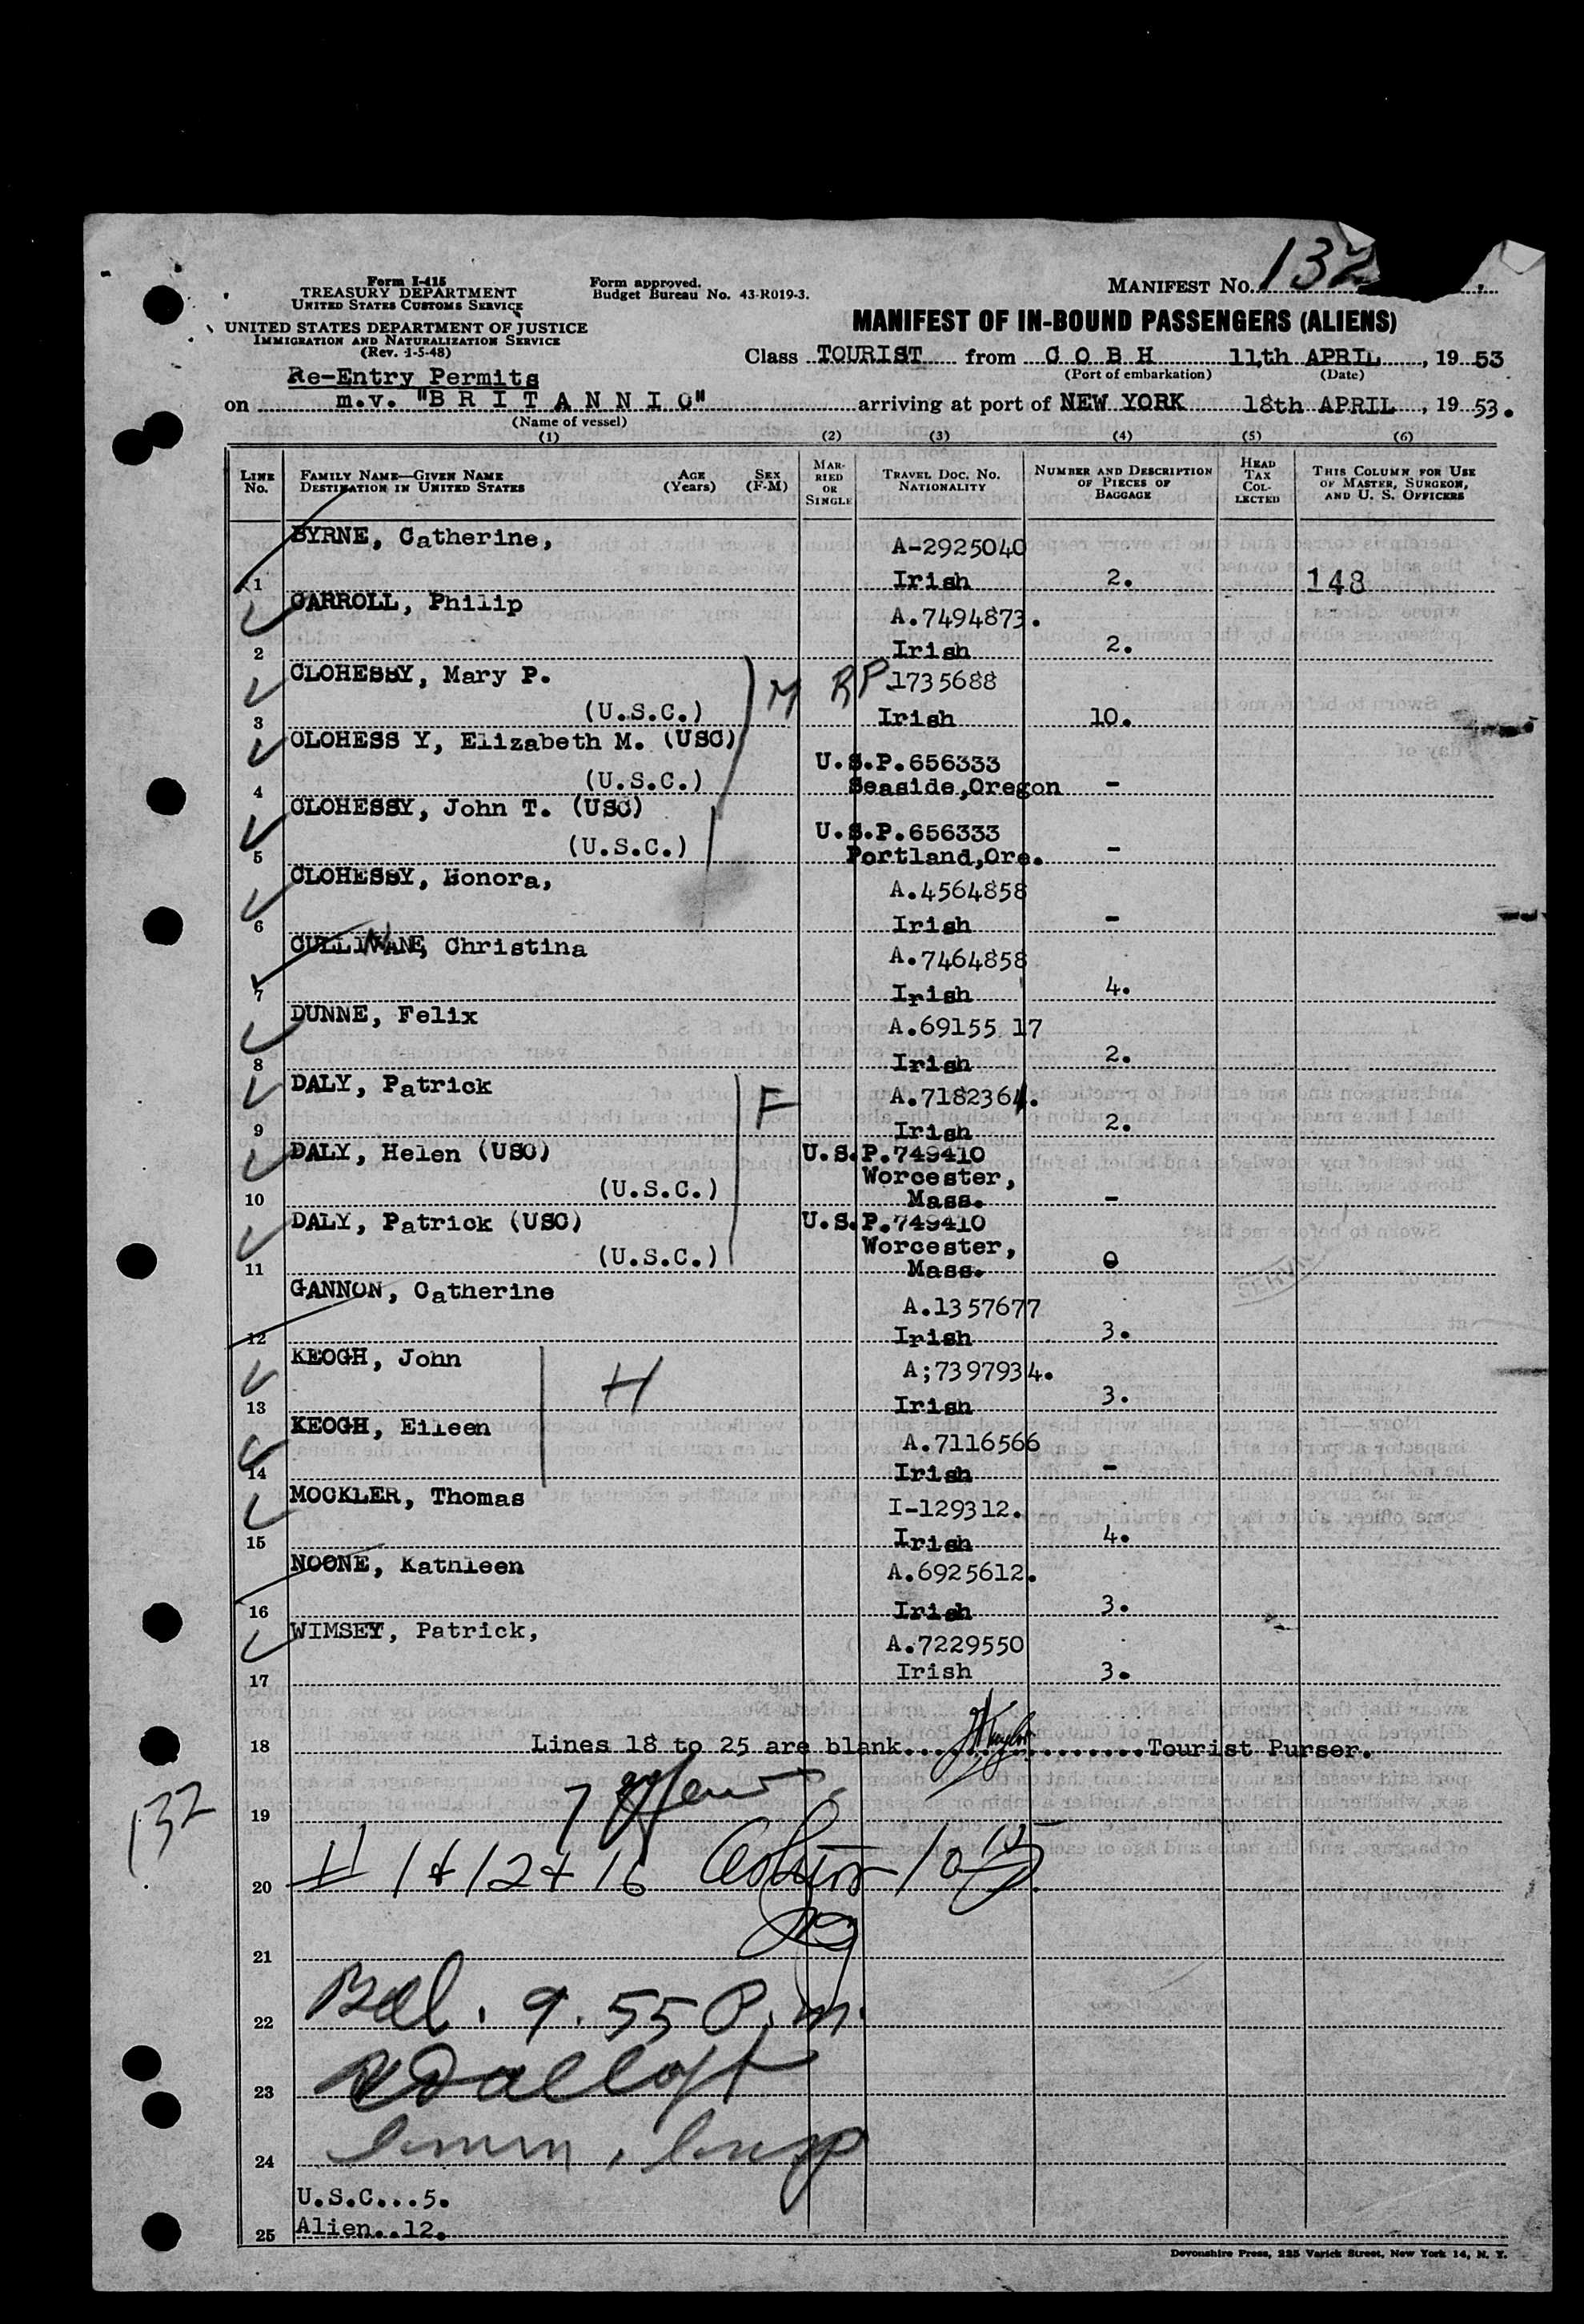 Form I-415
TREASURY DEPARTMENT
UNITED STATES CUSTOMS SERVICE
UNITED STATES DEPARTMENT OF JUSTICE
IMMIGRATION AND NATURALIZATION SERVICE
(Rev. 1-5-48)
Form approved.
Budget Bureau No. 43-R019-3.
MANIFEST NO. 132
MANIFEST OF IN-BOUND PASSENGERS (ALIENS)
Class TOURIST from C O B H 11th APRIL, 19 53
(Port of embarkation) (Date)
Re-Entry Permits
on m.v. "B R I T A N N I C" arriving at port of NEW YORK 18th APRIL, 19 53.
(Name of vessel)
(1) (2) (3) (4) (5) (6)
LINE No. FAMILY NAME—GIVEN NAME DESTINATION IN UNITED STATES AGE (Years) SEX (F-M) MARRIED OR SINGLE TRAVEL DOC. NO. NATIONALITY NUMBER AND DESCRIPTION OF PIECES OF BAGGAGE HEAD TAX COLLECTED THIS COLUMN FOR USE OF MASTER, SURGEON, AND U. S. OFFICERS
BYRNE, Catherine, A-2925040
1 Irish 2. 148
CARROLL, Philip A.7494873.
2 Irish 2.
CLOHESSY, Mary P. M RP 1735688
3 (U.S.C.) Irish 10.
CLOHESS Y, Elizabeth M. (USC) U.S.P.656333
4 (U.S.C.) Seaside,Oregon -
CLOHESSY, John T. (USC) U.S.P.656333
5 (U.S.C.) Portland,Ore. -
CLOHESSY, Honora, A.4564858
6 Irish -
CULLINANE, Christina A.7464858
7 Irish 4.
DUNNE, Felix A.69155 17
8 Irish 2.
DALY, Patrick F A.7182364.
9 Irish 2.
DALY, Helen (USC) U.S.P.749410
(U.S.C.) Worcester,
10 Mass. -
DALY, Patrick (USC) U.S.P.749410
(U.S.C.) Worcester,
11 Mass. 0
GANNON, Catherine A.1357677
12 Irish 3.
KEOGH, John H A;7397934.
13 Irish 3.
KEOGH, Eileen A.7116566
14 Irish -
MOCKLER, Thomas I-129312.
15 Irish 4.
NOONE, Kathleen A.6925612.
16 Irish 3.
WIMSEY, Patrick, A.7229550
17 Irish 3.
18 Lines 18 to 25 are blank. Tourist Purser.
132
19 7
20 1 + 12 + 16
21
22 Bal. 9.55 P.m.
23
24 Immn. Insp
U.S.C...5.
25 Alien..12.
Devonshire Press, 225 Varick Street, New York 14, N. Y.